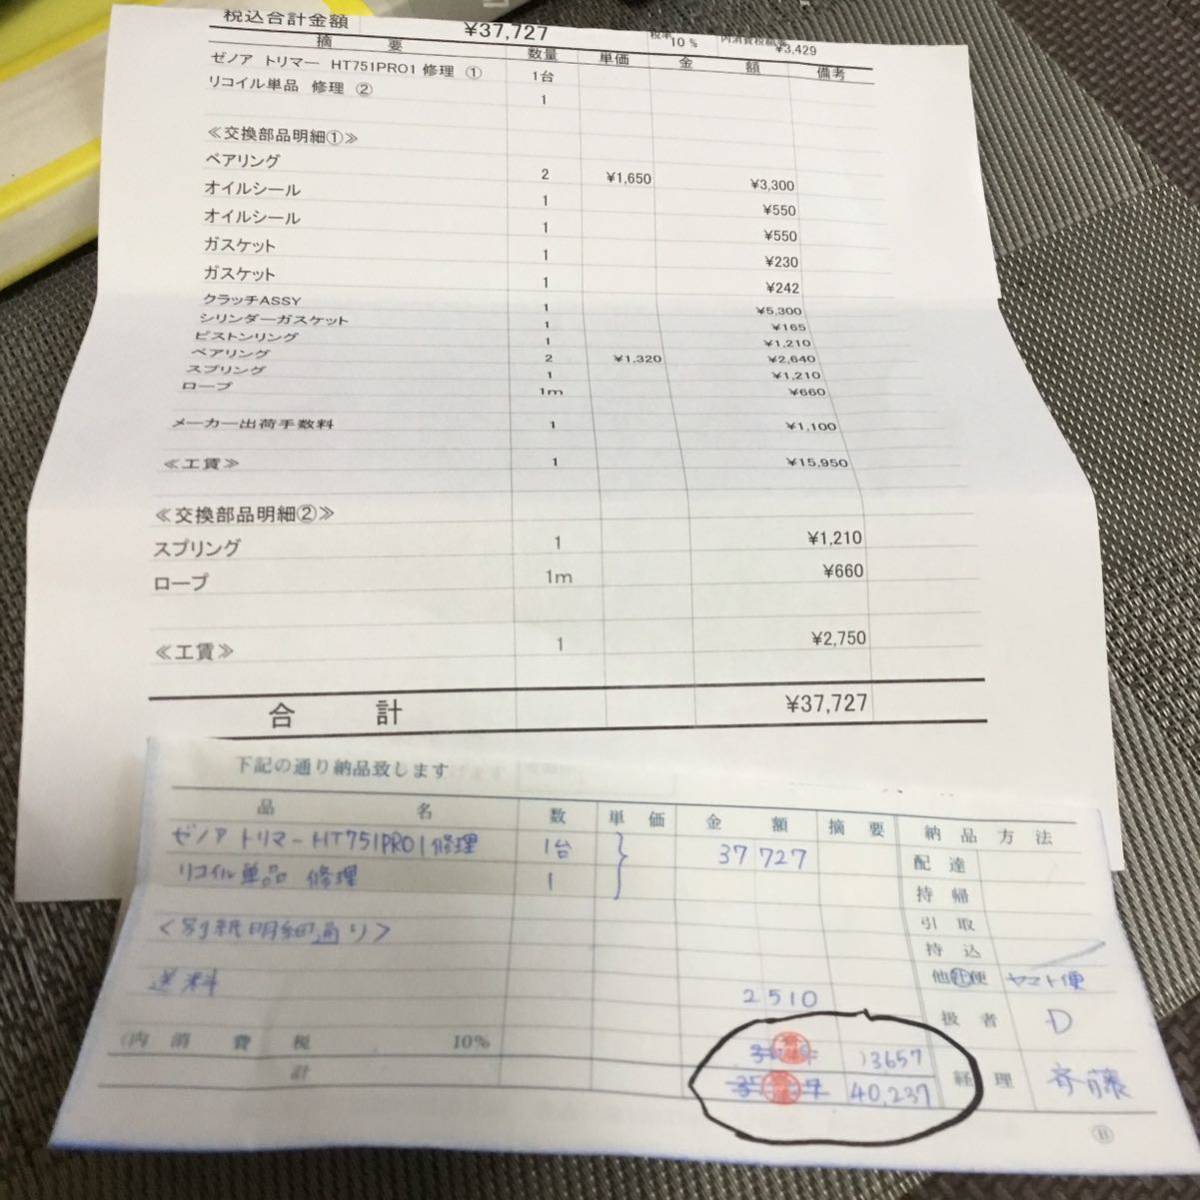 税込合計金額 ¥37,727 税率 10% 内消費税額等 ¥3,429
摘要 数量 単価 金額 備考
ゼノア トリマー HT751PRO1 修理 ① 1台
リコイル単品 修理 ② 1
≪交換部品明細①≫
ベアリング 2 ¥1,650 ¥3,300
オイルシール 1 ¥550
オイルシール 1 ¥550
ガスケット 1 ¥230
ガスケット 1 ¥242
クラッチASSY 1 ¥5,300
シリンダーガスケット 1 ¥165
ピストンリング 1 ¥1,210
ベアリング 2 ¥1,320 ¥2,640
スプリング 1 ¥1,210
ロープ 1m ¥660
メーカー出荷手数料 1 ¥1,100
≪工賃≫ 1 ¥15,950
≪交換部品明細②≫
スプリング 1 ¥1,210
ロープ 1m ¥660
≪工賃≫ 1 ¥2,750
合計 ¥37,727
下記の通り納品致します
品名 数 単価 金額 摘要 納品方法
ゼノア トリマー HT751PRO1修理 1台 37727 配達
リコイル単品 修理 1 持帰
<別紙明細通り> 引取
持込
送料 2510 他社便 ヤマト便
扱者 D
(内消費税 10% )3657
計 40,237 経理 斉藤
Ⓑ